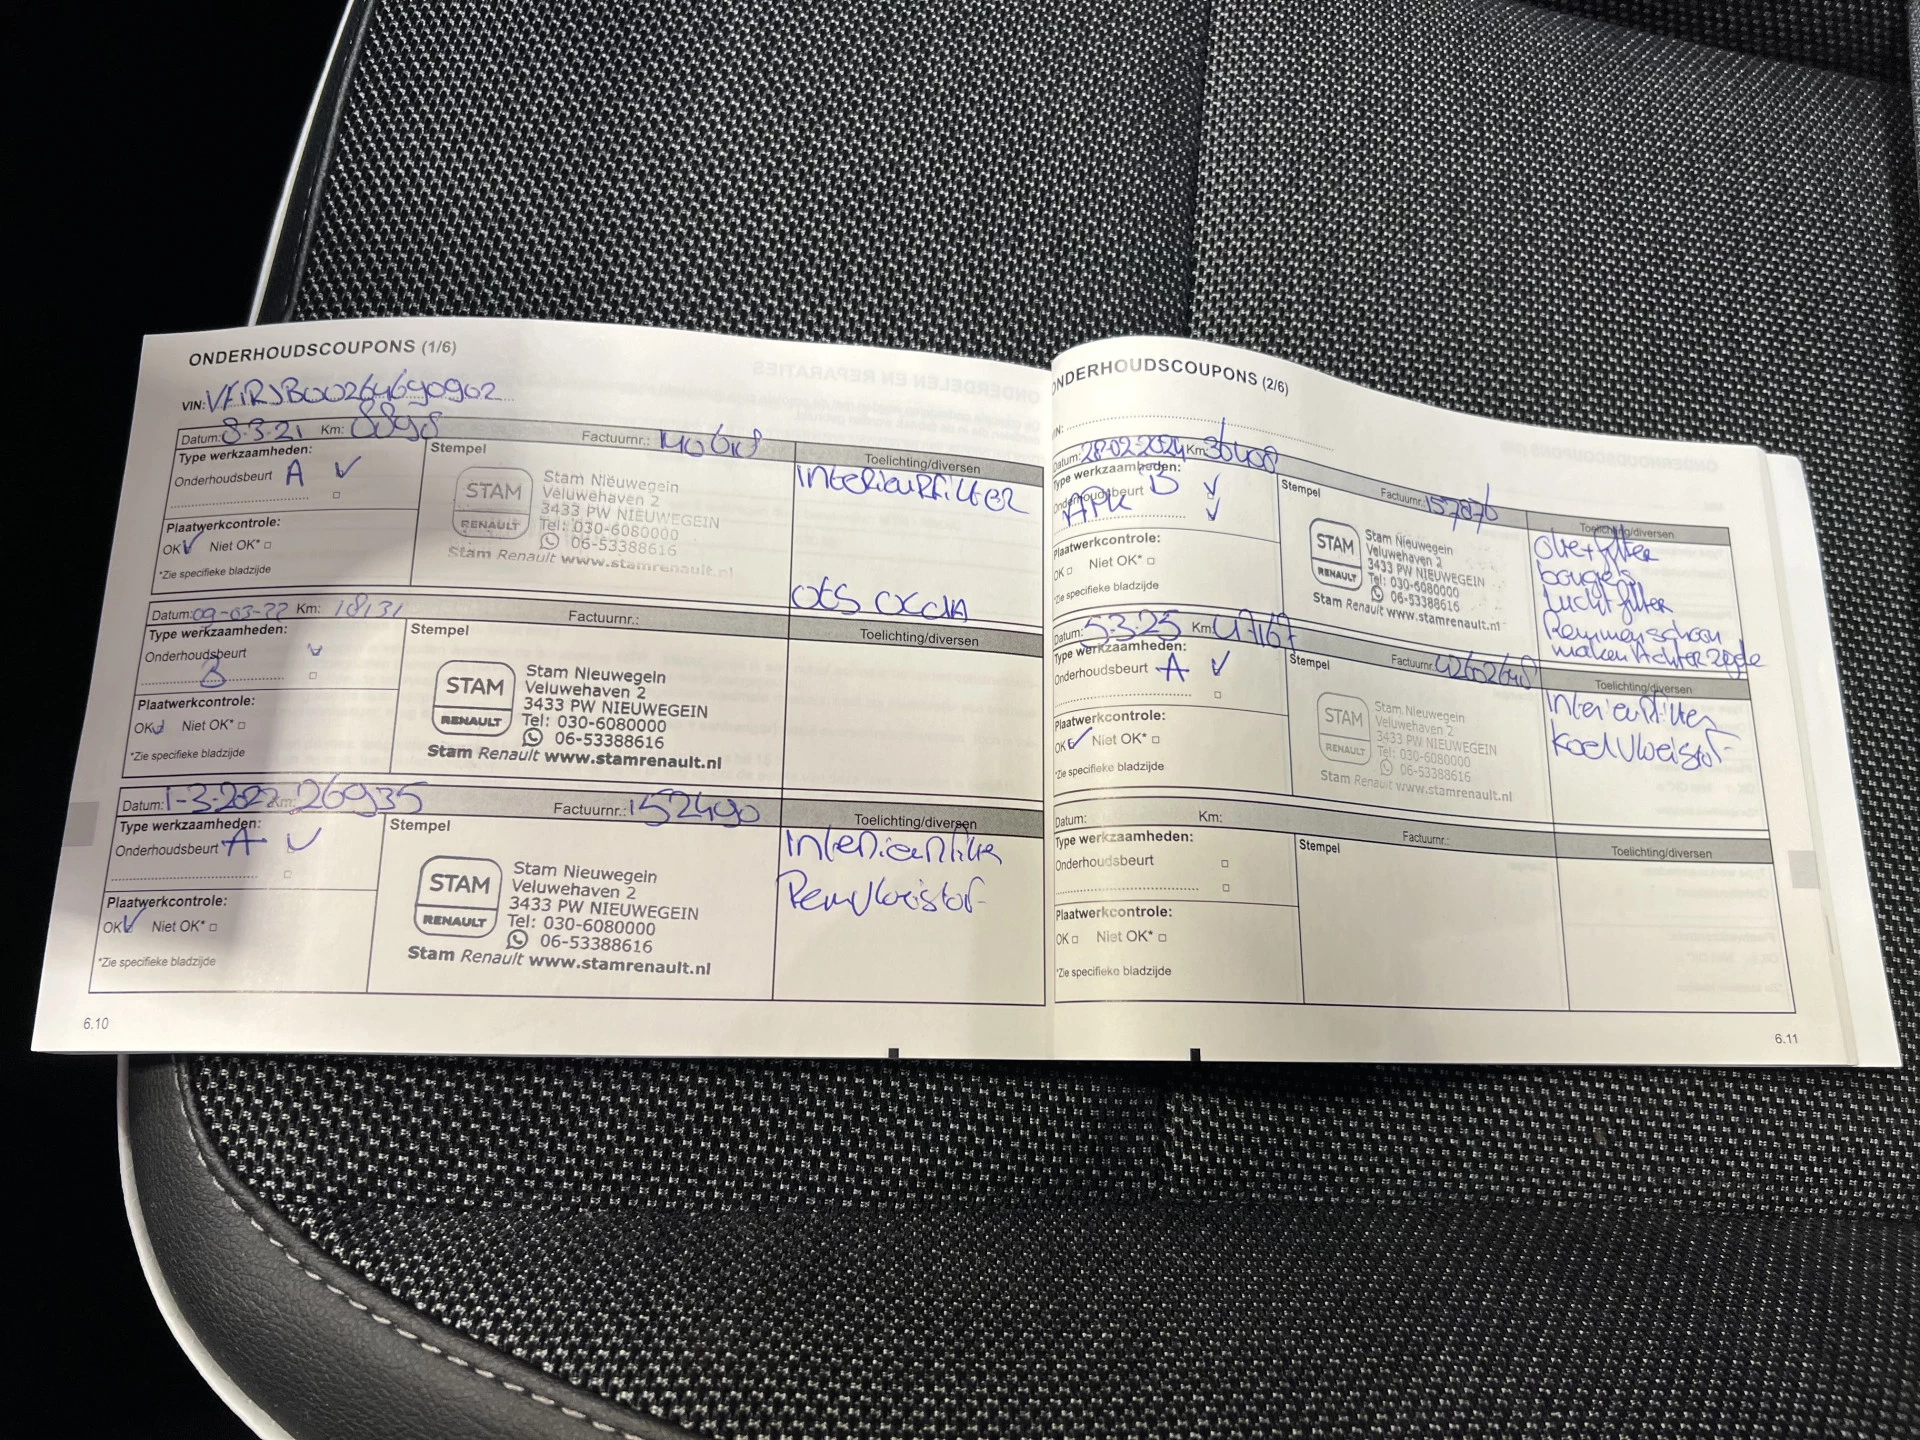 ONDERHOUDSCOUPONS (1/6)
VIN: VF1RJB00264690902
Datum: 8-3-21 Km: 8898 Factuurnr.:
Type werkzaamheden:
Onderhoudsbeurt A
Stempel
Toelichting/diversen
Interieurfilter
STAM
RENAULT
Stam Nieuwegein
Veluwehaven 2
3433 PW NIEUWEGEIN
Tel: 030-6080000
06-53388616
Stam Renault www.stamrenault.nl
Plaatwerkcontrole:
OK Niet OK*
*Zie specifieke bladzijde
Datum: 09-03-22 Km: 18131 Factuurnr.:
Type werkzaamheden:
Onderhoudsbeurt
B
Stempel
Toelichting/diversen
STAM
RENAULT
Stam Nieuwegein
Veluwehaven 2
3433 PW NIEUWEGEIN
Tel: 030-6080000
06-53388616
Stam Renault www.stamrenault.nl
Plaatwerkcontrole:
OK Niet OK*
*Zie specifieke bladzijde
Datum: Km: 26935 Factuurnr.: 152490
Type werkzaamheden:
Onderhoudsbeurt A
Stempel
Toelichting/diversen
Interieurfilter
Remvloeistof
STAM
RENAULT
Stam Nieuwegein
Veluwehaven 2
3433 PW NIEUWEGEIN
Tel: 030-6080000
06-53388616
Stam Renault www.stamrenault.nl
Plaatwerkcontrole:
OK Niet OK*
*Zie specifieke bladzijde
6.10
ONDERHOUDSCOUPONS (2/6)
VIN:
Datum: 28-02-2024 Km: 36408 Factuurnr.: 157876
Type werkzaamheden:
Onderhoudsbeurt B
APK
Stempel
Toelichting/diversen
olie + filter
bougies
Luchtfilter
Remmen schoon
maken Achterzijde
STAM
RENAULT
Stam Nieuwegein
Veluwehaven 2
3433 PW NIEUWEGEIN
Tel: 030-6080000
06-53388616
Stam Renault www.stamrenault.nl
Plaatwerkcontrole:
OK Niet OK*
*Zie specifieke bladzijde
Datum: 5-3-25 Km: 47167 Factuurnr.:
Type werkzaamheden:
Onderhoudsbeurt A
Stempel
Toelichting/diversen
Interieurfilter
Koelvloeistof
STAM
RENAULT
Stam Nieuwegein
Veluwehaven 2
3433 PW NIEUWEGEIN
Tel: 030-6080000
06-53388616
Stam Renault www.stamrenault.nl
Plaatwerkcontrole:
OK Niet OK*
*Zie specifieke bladzijde
Datum: Km: Factuurnr.:
Type werkzaamheden:
Onderhoudsbeurt
Stempel
Toelichting/diversen
Plaatwerkcontrole:
OK Niet OK*
*Zie specifieke bladzijde
6.11